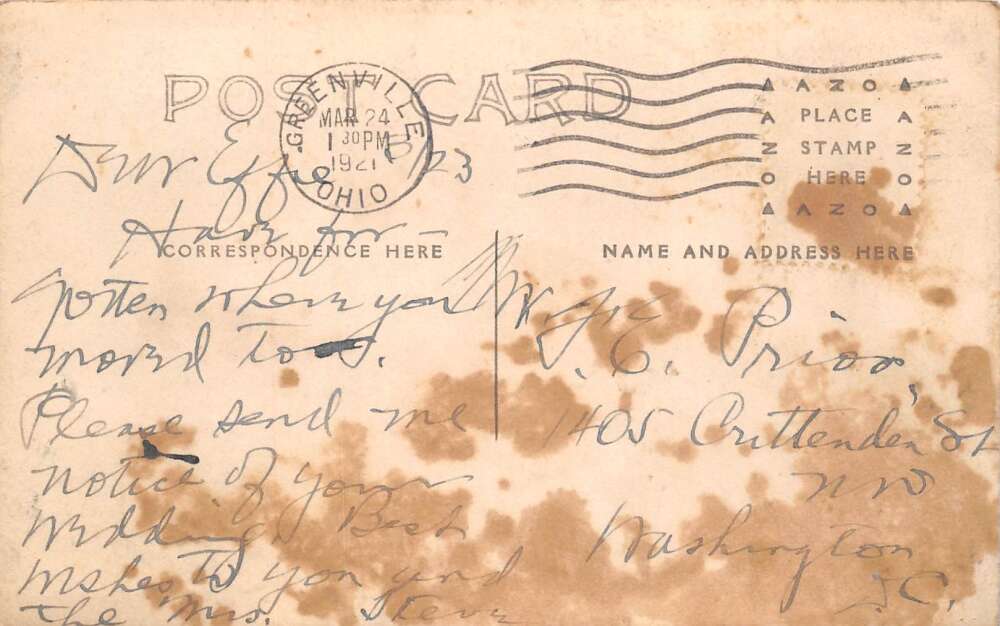 POST CARD
GREENVILLE
MAR 24
1 30 PM
1921
OHIO
AZO
PLACE
STAMP
HERE
AZO
Dear Effie 23
CORRESPONDENCE HERE
NAME AND ADDRESS HERE
Have for-
gotten where you
moved to.
Please send me
notice of your
wedding. Best
wishes to you and
the Mrs. Steve
Mr J. E. Prior,
1405 Crittenden St
NW
Washington
D.C.